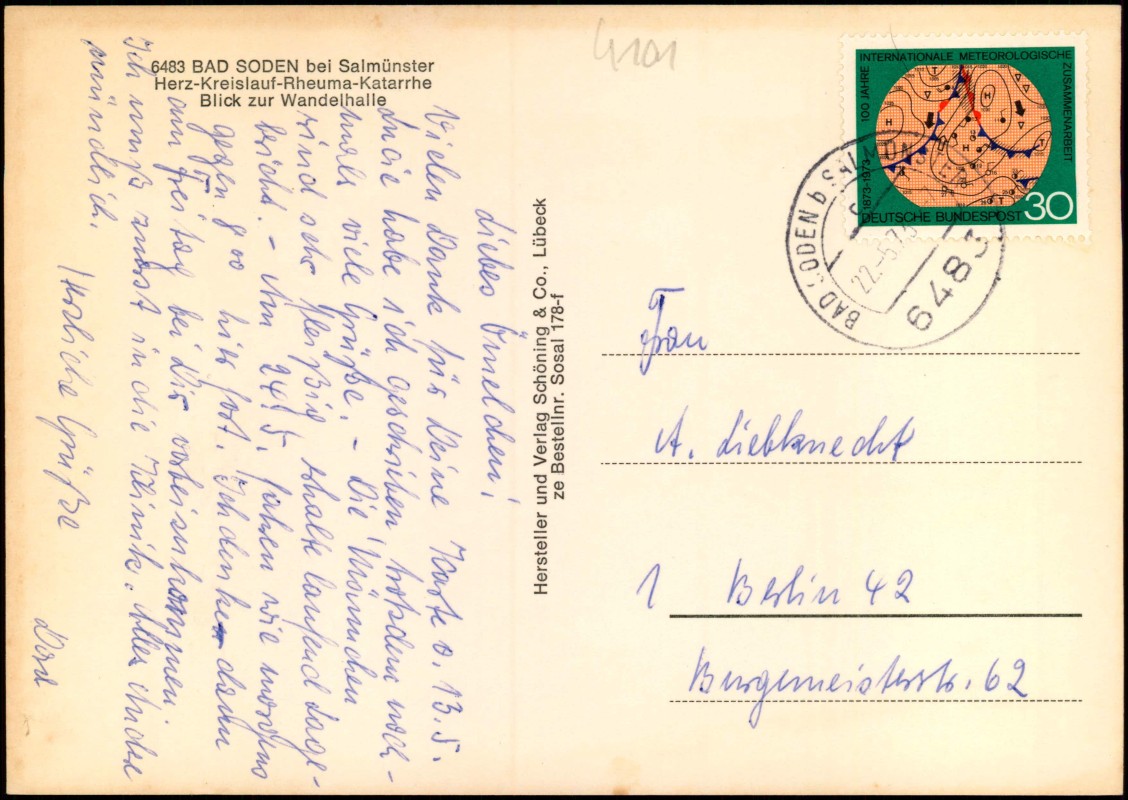 6483 BAD SODEN bei Salmünster
Herz-Kreislauf-Rheuma-Katarrhe
Blick zur Wandelhalle
Liebes
Vielen Dank für Deine Karte v. 13.5.
habe ich geschrieben, trotzdem noch-
mals viele Grüße. – Die Männchen
sind sehr fleißig, erhalte laufend Lage-
bericht. – Am 24.5. fahren wir morgens
gegen 9oo hier fort. Ich denke dann
am Freitag bei Dir vorbeizukommen.
Ich muß zuerst in die Klinik. Alles Andere
mündlich.
Herzliche Grüße
Hersteller und Verlag Schöning & Co., Lübeck
ze Bestellnr. Sosal 178-f
1873-1973 100 JAHRE INTERNATIONALE METEOROLOGISCHE ZUSAMMENARBEIT
DEUTSCHE BUNDESPOST 30
BAD SODEN b SALMÜN
22.-5.73
6483
Frau
A. Liebknecht
1 Berlin 42
Burgemeisterstr. 62